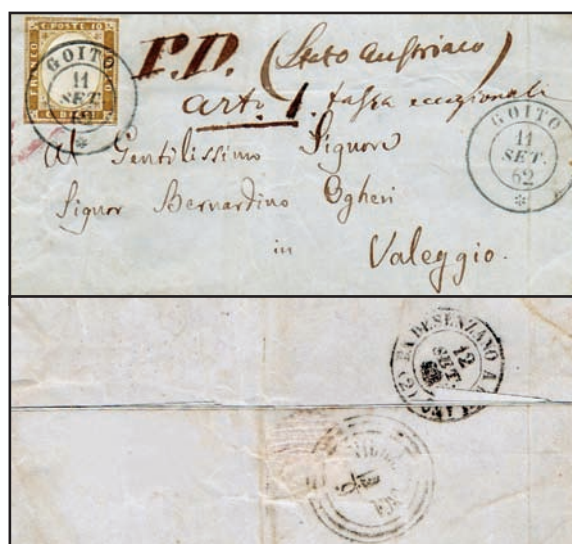 C. POSTE 10
FRANCO
GOITO
11
SET.
P.D. (Stato Austriaco)
Arto. 1. tassa eccezionali
GOITO
11
SET.
62
Al Gentilissimo Signore
Signor Bernardino Ogheri
in
Valeggio.
(2) DA DESENZANO A
12
SET.